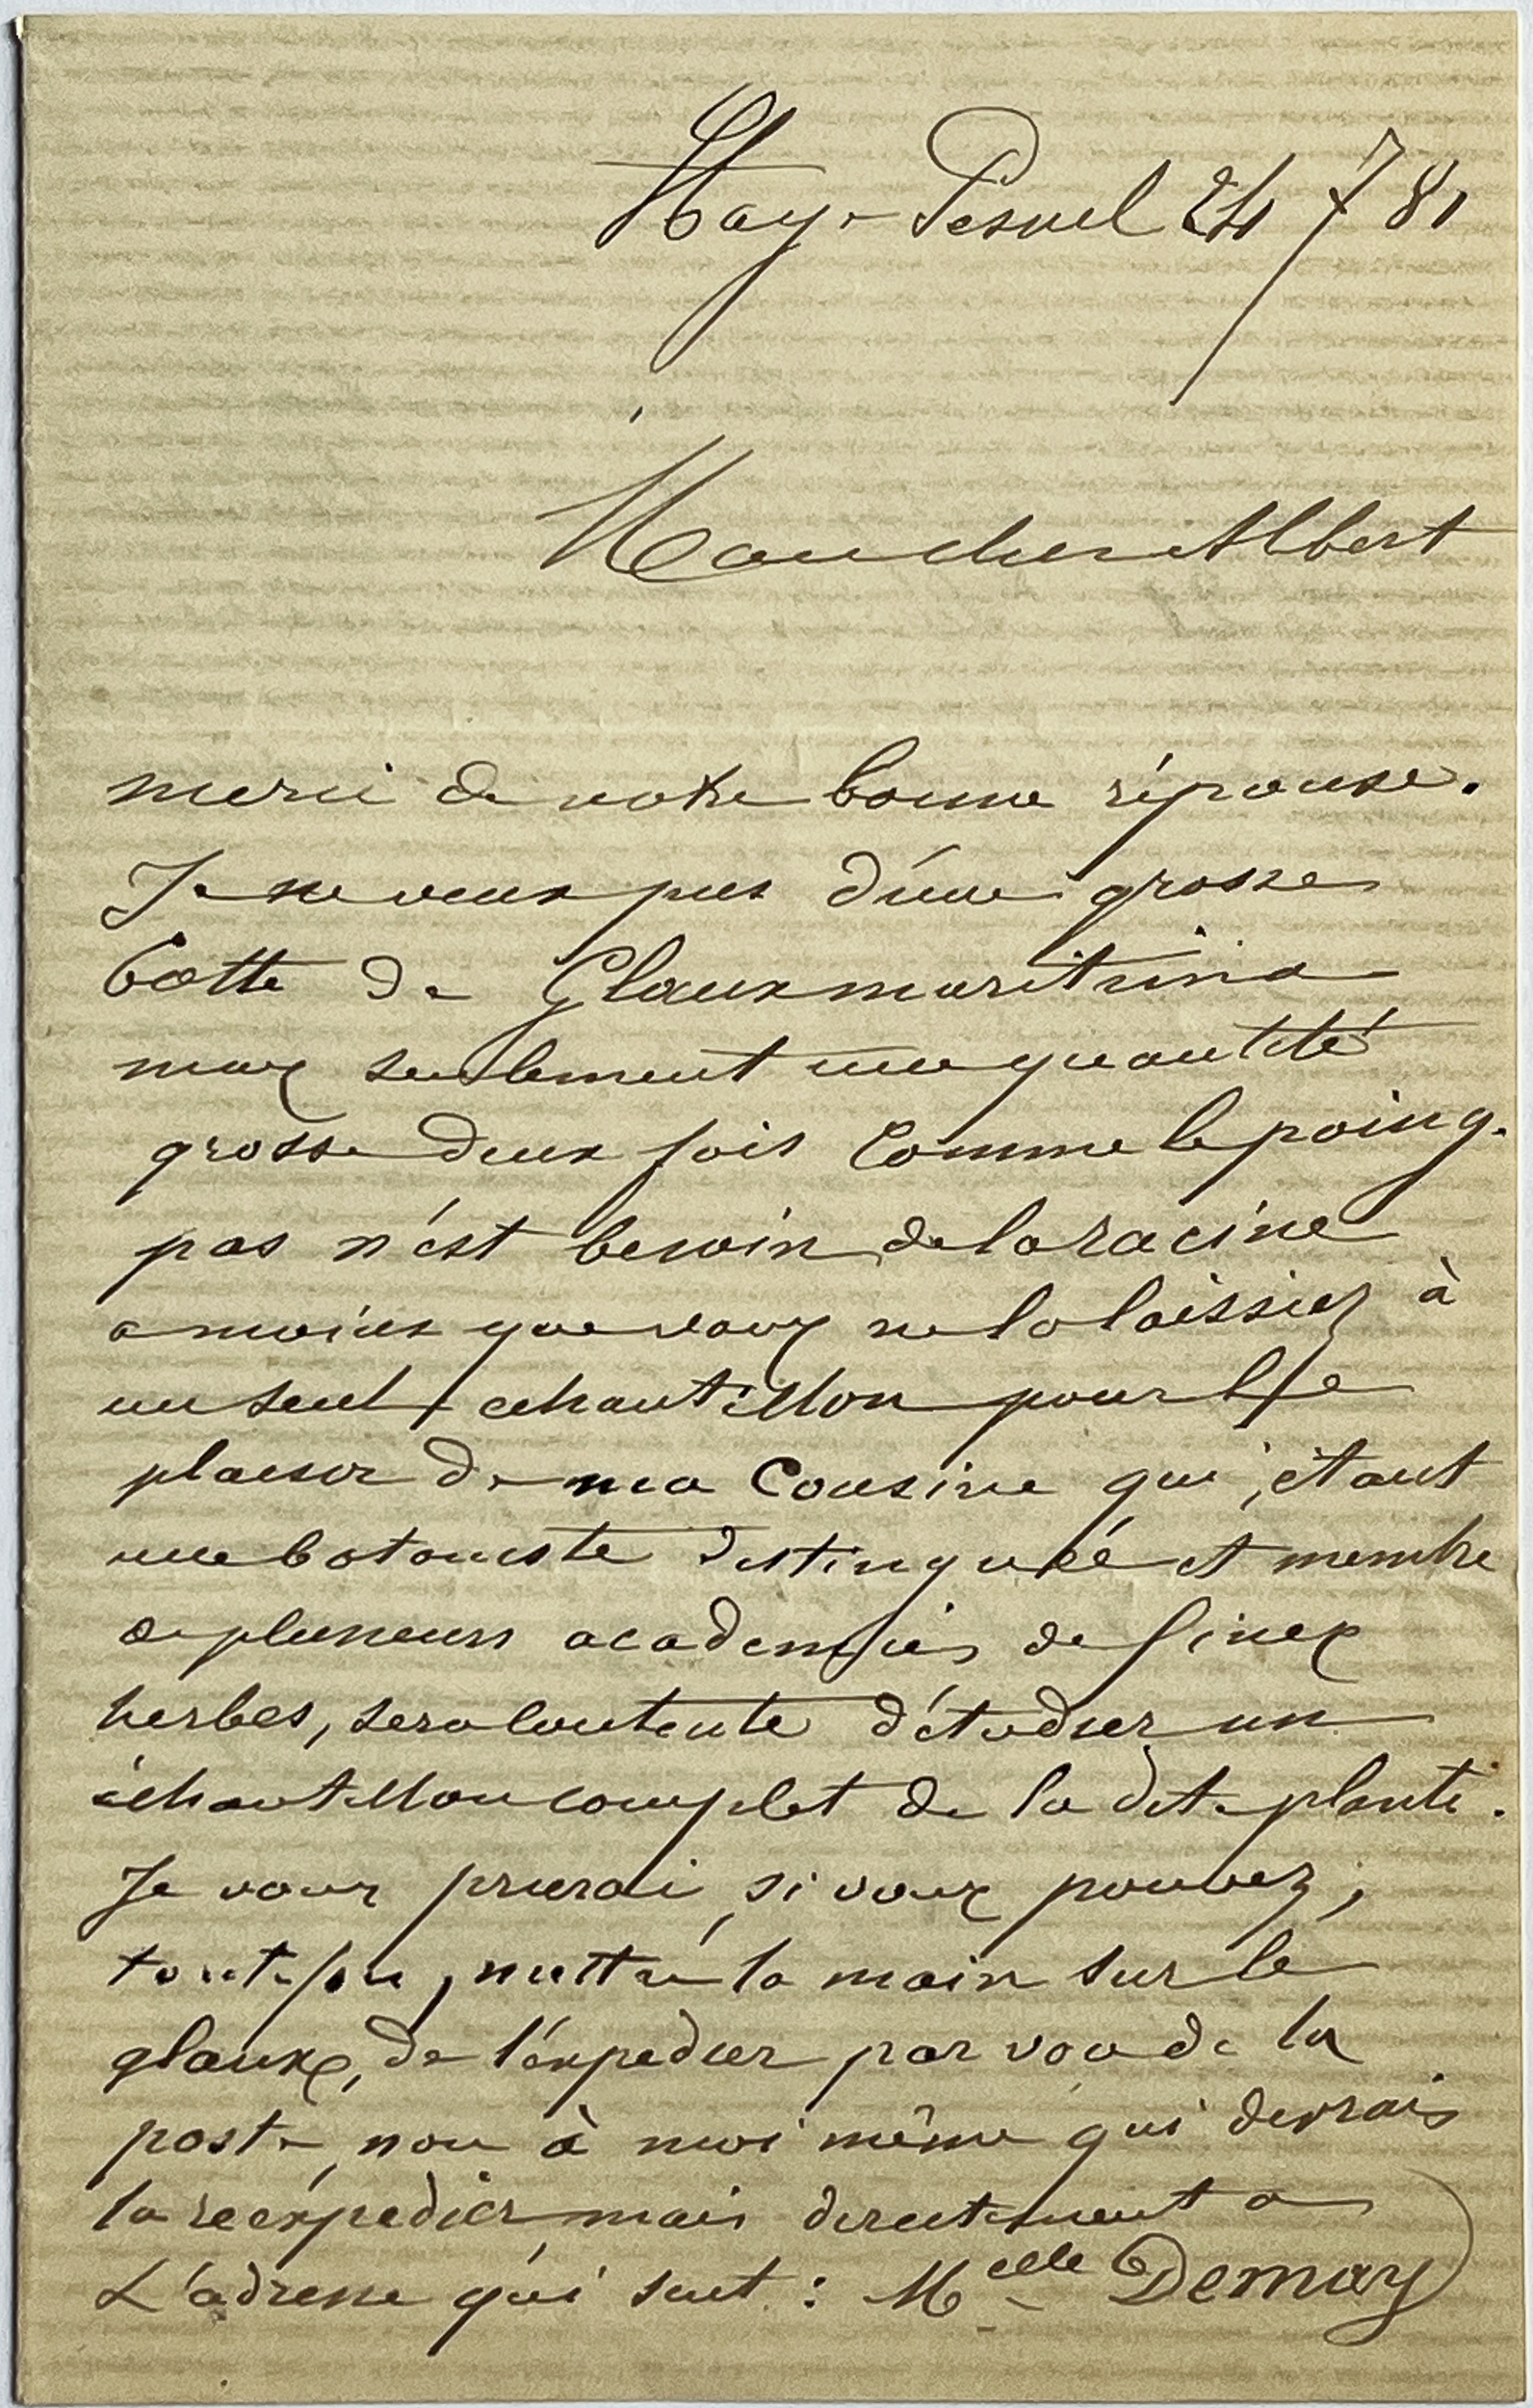 Hay-Pesnel 24 7 81
Mon cher Albert
merci de votre bonne réponse.
Je ne veux pas d'une grosse
botte de Glaux maritima
mais seulement une quantité
grosse deux fois comme le poing.
pas n'est besoin de la racine
a moins que vous ne la laissiez à
un seul echantillon pour le
plaisir de ma Cousine qui, étant
une botaniste distinguée et membre
de plusieurs academies de fines
herbes, sera contente d'étudier un
échantillon complet de la dite plante.
Je vous prierai, si vous pouvez,
toutefois, mettre la main sur le
glaux, de l'expedier par voie de la
poste, non à moi même qui devrais
la reexpedier mais directement a
L'adresse qui suit : Melle Demay